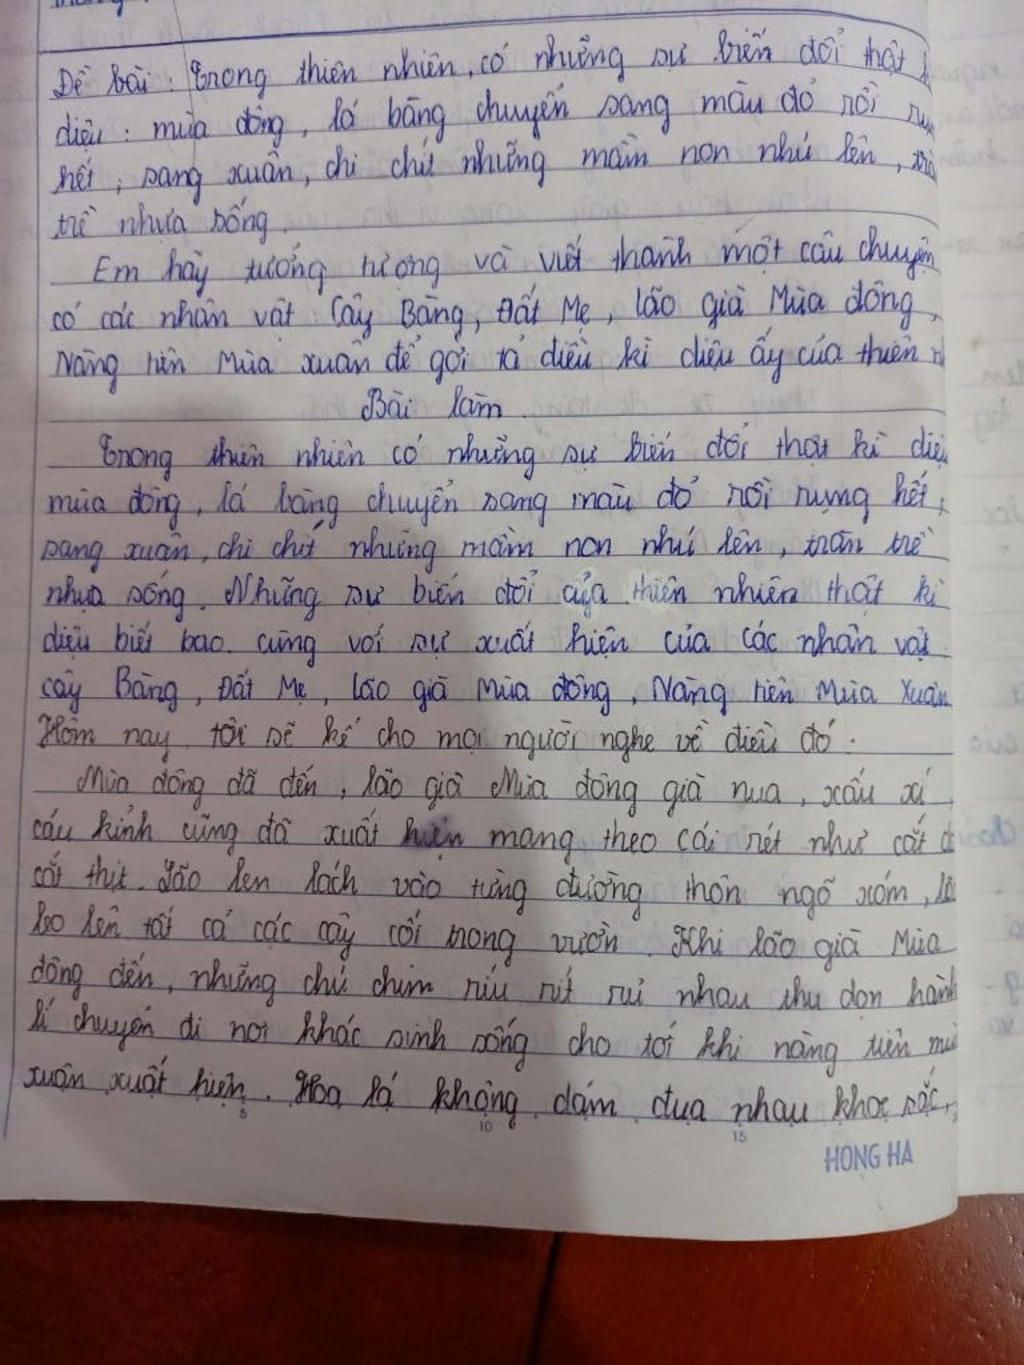 Đề bài: Trong thiên nhiên, có những sự biến đổi thật
diệu: mùa đông, lá bàng chuyển sang màu đỏ rồi
hết; sang xuân, chi chít những mầm non nhú lên,
trề nhựa sống.
Em hãy tưởng tượng và viết thành một câu chuyện
có các nhân vật: Cây Bàng, Đất Mẹ, lão già Mùa đông,
Nàng tiên Mùa xuân để gợi tả điều kì diệu ấy của thiên
Bài làm
Trong thiên nhiên có những sự biến đổi thật kì
mùa đông, lá bàng chuyển sang màu đỏ rồi rụng hết;
sang xuân, chi chít những mầm non nhú lên, tràn trề
nhựa sống. Những sự biến đổi của thiên nhiên thật kì
diệu biết bao cùng với sự xuất hiện của các nhân vật
cây Bàng, Đất Mẹ, lão già Mùa đông, Nàng tiên Mùa Xuân
Hôm nay, tôi sẽ kể cho mọi người nghe về điều đó.
Mùa đông đã đến, lão già Mùa đông già nua, xấu xí,
cáu kỉnh cũng đã xuất hiện mang theo cái rét như cắt
cắt thịt. Lão len lách vào từng đường thôn ngõ xóm,
leo lên tất cả các cây cối trong vườn. Khi lão già Mùa
đông đến, những chú chim ríu rít rủ nhau thu dọn hành
lí chuyển đi nơi khác sinh sống cho tới khi nàng tiên
xuân xuất hiện. Hoa lá không dám đua nhau khoe sắc,
5
10
15
HONG HA